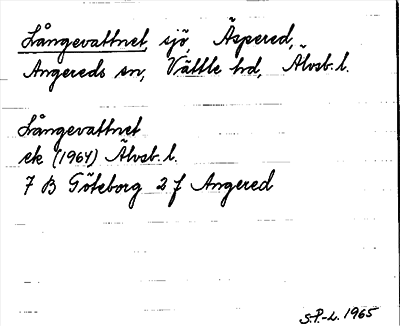 Långevattnet sjö, Äspered,
Angereds sn, Vättle hd, Älvsb. l.
Långevattnet
ek (1964) Älvsb. l.
7 B Göteborg 2 f Angered
S.P.-L. 1965